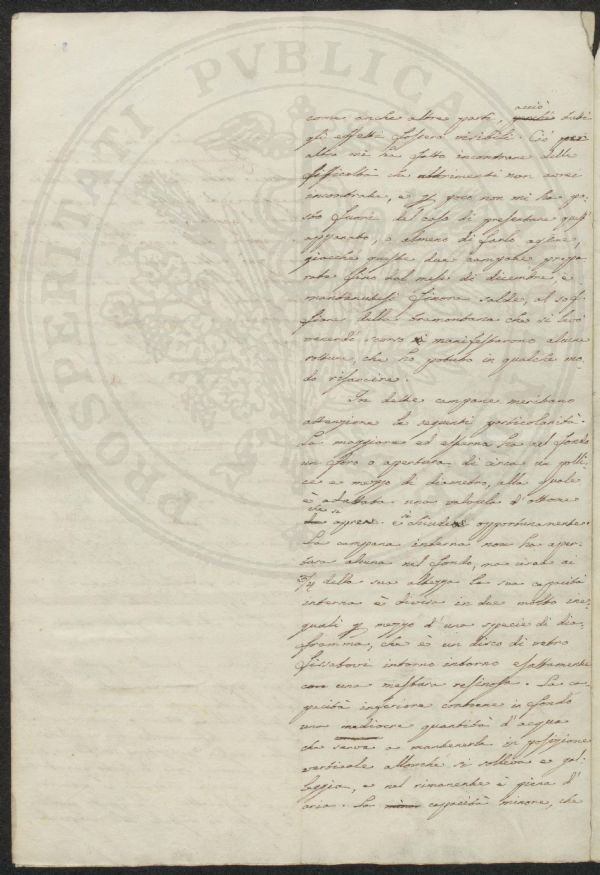 PROSPERITATI PVBLICAE
acciò
come anche altre parti, tutti
gli effetti fossero visibili. Ciò
altro mi ha fatto incontrare delle
difficoltà che altrimenti non avrei
incontrate, e p. poco non mi ha po-
sto fuori del caso di presentare quest'
apparato, o almeno di farlo agire,
giacchè queste due campane prepa-
rate fino dal mese di dicembre, e
mantenutesi finora salde, al sof-
fiare della tramontana che si levò
venerdì scorso manifestarono alcune
rotture, che ho potuto in qualche mo-
do risarcire.
Tre dette campane meritano
attenzione le seguenti particolarità.
La maggiore ed esterna ha nel fondo
un foro o apertura di circa un polli-
ce e mezzo di diametro, alla quale
è adattata una valvola d'ottone
che si
apre e si chiude opportunamente.
La campana interna non ha aper-
tura alcuna nel fondo, ma circa ai
3/4 della sua altezza la sua capacità
interna è divisa in due molto ine-
quali p mezzo d'una specie di dia-
framma, che è un disco di vetro
fissatovi intorno intorno esattamente
con una mestura resinosa. La ca-
pacità inferiore contiene in fondo
una mediocre quantità d'acqua
che serve a mantenerla in posizione
verticale allorchè si solleva e gal-
leggia, e nel rimanente è piena d'
aria. La minor capacità minore, che